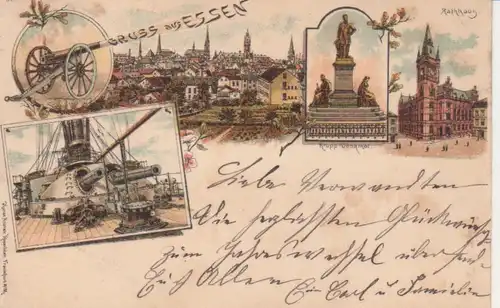 GRUSS aus ESSEN
Rathhaus
Krupp-Denkmal
Liebe Verwandten
Die herzlichsten Glückwünsche
zum Jahreswechsel übersendet
Euch Allen
Carl u Familie